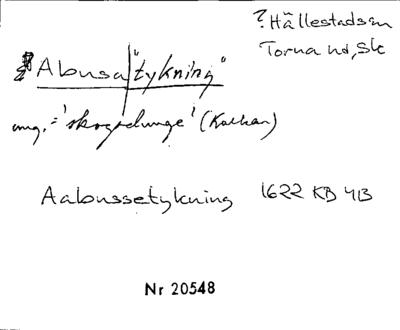 ? Hällestads sn
Torna hd, Sk
Abusa "tykning"
ung. = 'skogsdunge' (Kalkar)
Aabussetykning 1622 KB 413
Nr 20548